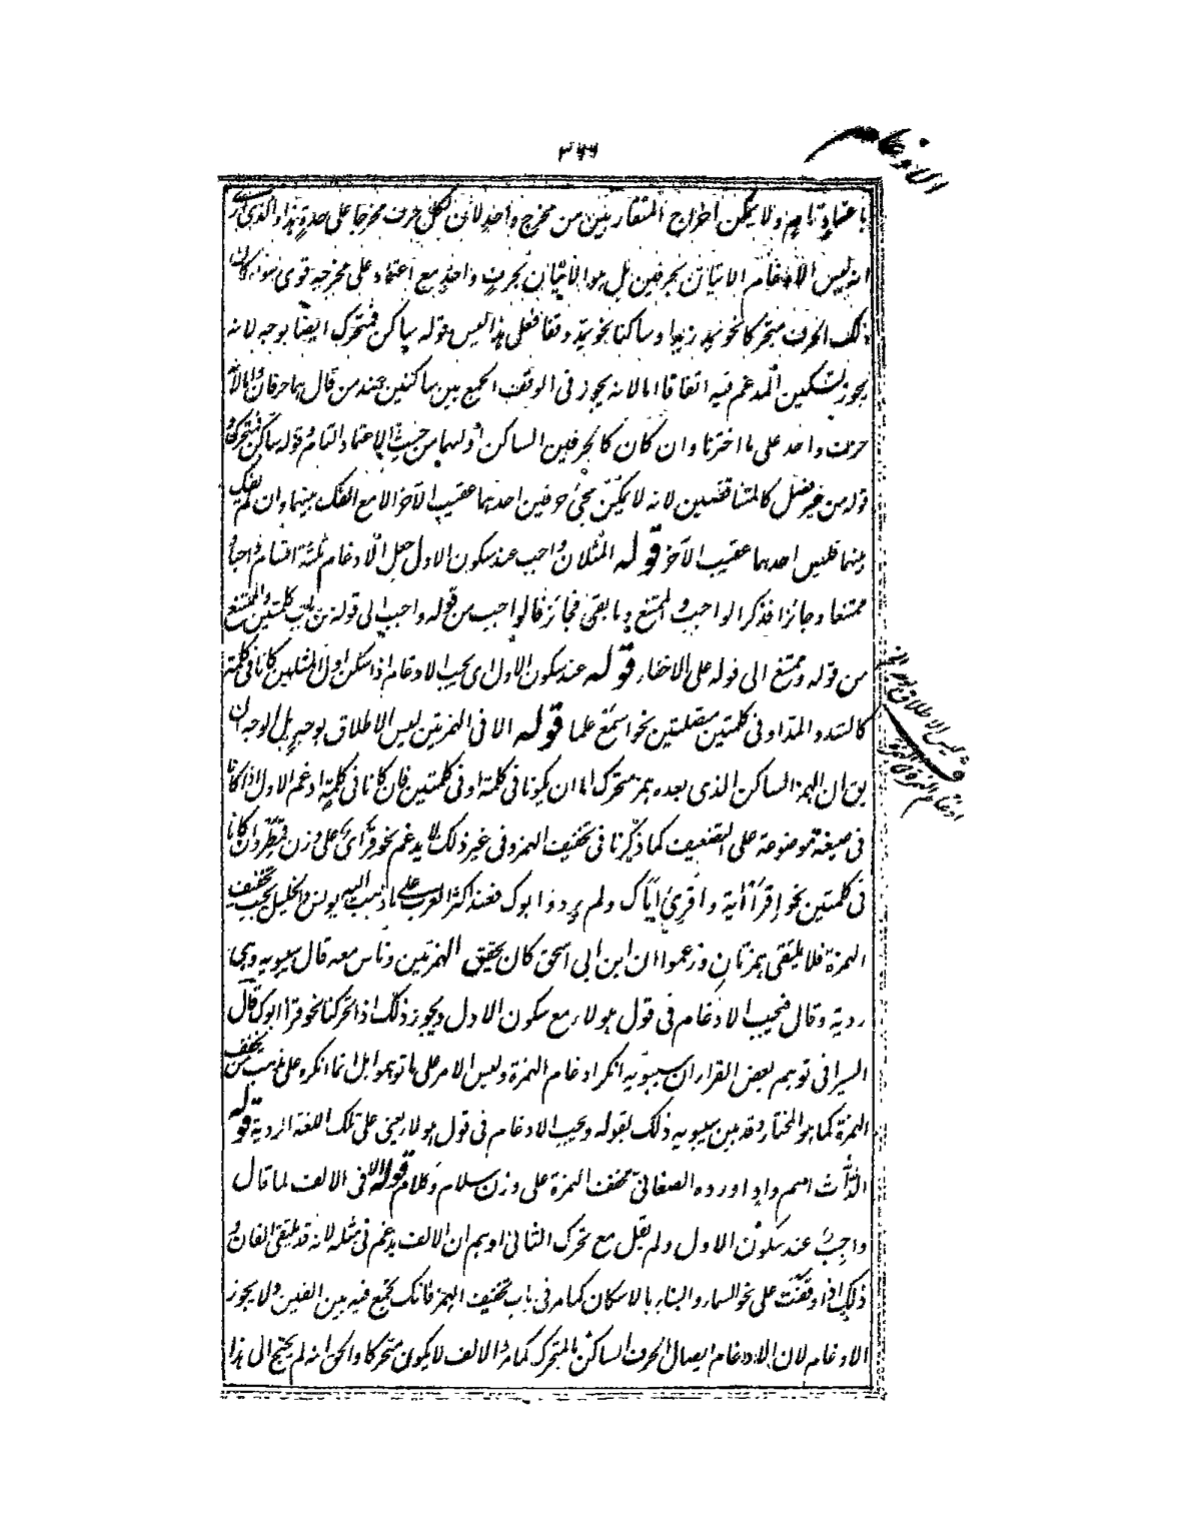 الادغام
٣٤٤
باعتماد تام ولا يمكن اخراج المتقاربين من مخرج واحد لان لكل حرف مخرجا على حدة هذا والذي ارى
انه ليس الادغام الاتيان بحرفين بل هو الاتيان بحرف واحد مع اعتماد على مخرجه قوى سواء كان
ذلك الحرف متحركا نحو يمد زيد او ساكنا نحو يمد وقفا فعلى هذا ليس قوله ساكن فمتحرك ايضا بوجه لانه
يجوز تسكين المدغم فيه اتفاقا اما لانه يجوز فى الوقف الجمع بين ساكنين عند من قال هما حرفان واما لانه
حرف واحد على ما اخترنا وان كان كالحرفين الساكن اولهما من حيث الاعتماد التام وقوله ساكن فمتحرك و
قوله من غير فصل كالمتناقضين لانه لا يمكن مجئ حرفين احدهما عقيب الآخر الا مع الفك بينهما وان لم تفك
بينهما فليس احدهما عقيب الآخر قوله المثلان واجب عند سكون الاول جعل الادغام ثلثة اقسام واجبا و
ممتنعا وجائزا فذكر الواجب والممتنع وما بقى فجائز فالواجب من قوله واجب الى قوله من باب كلمتين والممتنع
من قوله وممتنع الى قوله على الاخفاء قوله عند سكون الاول اى يجب الادغام اذا سكن اول المثلين كانا فى كلمة
كالشد والمد او فى كلمتين متصلتين نحو اسمع علما قوله الا فى الهمزتين ليس الاطلاق بوجيه بل الوجه ان
يق ان الهمز الساكن الذى بعده همز متحرك اما ان يكونا فى كلمة او فى كلمتين فان كانا فى كلمة ادغم الاول اذا كانا
فى صيغة موضوعة على التضعيف كما ذكرنا فى تخفيف الهمز وفى غير ذلك لا يدغم نحو قرأى على وزن قمطر وان كانا
فى كلمتين نحو اقرأ آية واقرئ اياك ولم يردؤ ابوك فعند اكثر العرب على ما ذهب اليه يونس والخليل يجب تخفيف
الهمزة فلا يلتقى همزتان وزعموا ان ابن ابى اسحق كان يحقق الهمزتين وناس معه قال سيبويه وهى
ردية وقال فيجب الادغام فى قول هؤلاء مع سكون الاول ويجوز ذلك اذا تحركتا نحو قرأ ابوك قال
السيرافى توهم بعض القراء ان سيبويه انكر ادغام الهمزة وليس الامر على ما توهموا بل انما انكره على مذهب من يخفف
الهمزة كما هو المختار وقد بين سيبويه ذلك بقوله ويجب الادغام فى قول هؤلاء يعنى على تلك اللغة الردية قوله
الدأّث اسم واد اورده الصغانى مخفف الهمزة على وزن سلام وكلام قوله الا فى الالف لما قال
واجب عند سكون الاول ولم يقل مع تحرك الثانى اوهم ان الالف يدغم فى مثله لانه قد يلتقى الفان و
ذلك اذا وقفت على نحو السماء والبناء بالاسكان كما مر فى باب تخفيف الهمز فانك تجمع فيه بين الفين ولا يجوز
الادغام لان الادغام ايصال الحرف الساكن بالمتحرك كما مر والالف لا يكون متحركا والحق انه لم يحتج الى هذا
ليس الاطلاق